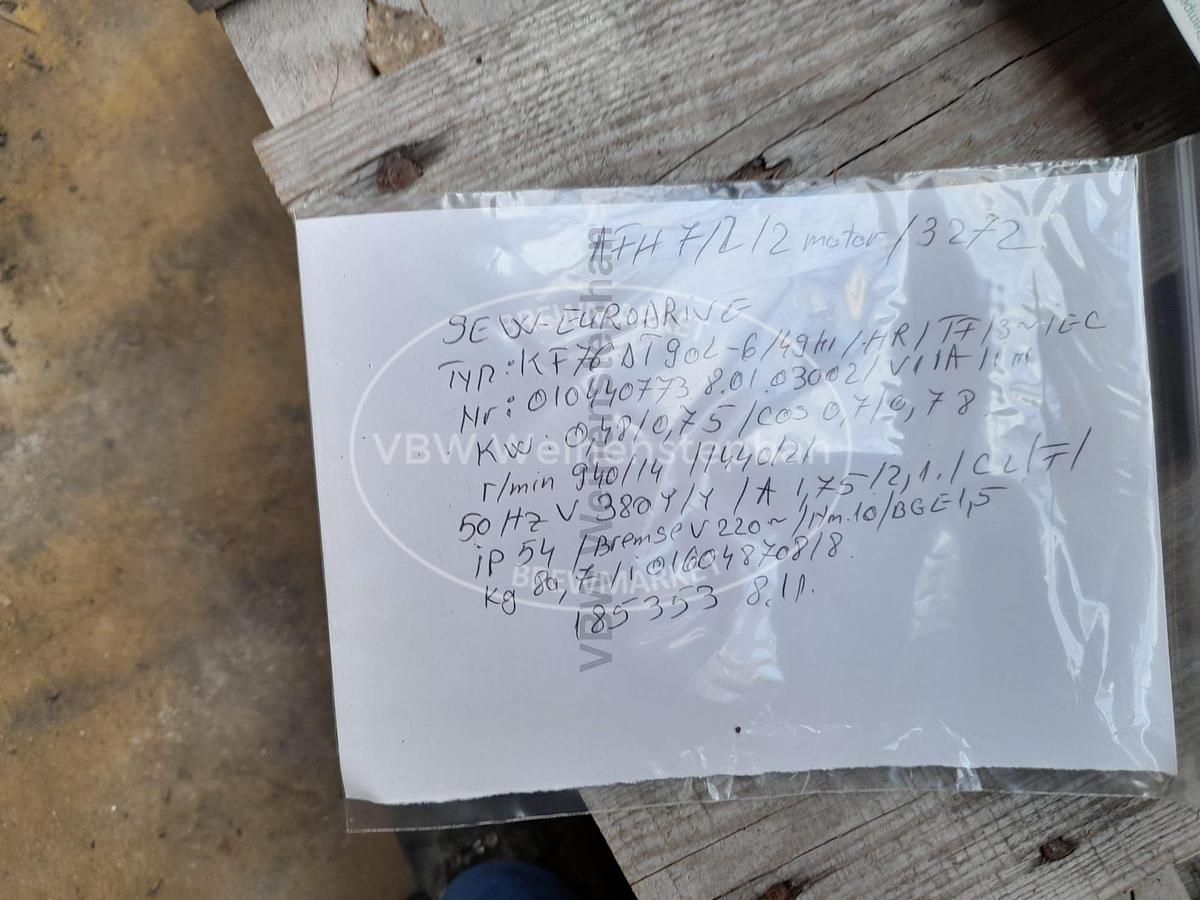 7/2/2 motor/3272
SEW-EURODRIVE
Typ: KF76 DT90L-6/4 /HR/TF/3~IEC
Nr: 010440773 8.01.03002/V1/1A/
KW. 0,48/0,75/COS 0,7/0,78
r/min 940/14 /1440/21
50HZ V 380 Y/Y /A 1,75/2,1./CL/F/
iP 54 /Bremse V 220~/Nm.10/BGE1,5
kg 80,7/i 01604870818.
185353 8.11.
VBW Weihenstephan
BREWMARKET
VBW Weihenstephan